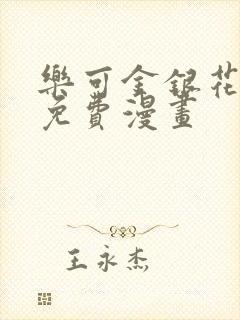 樂可金銀花
免費漫畫
王永杰